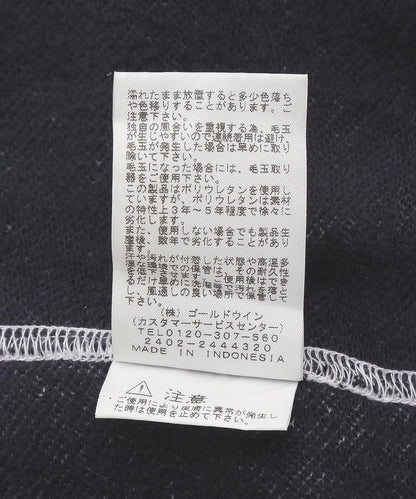 濡れたまま放置すると多少色落ち
や色移りすることがあります。ご
注意下さい。
独自の風合いを重視する為、毛玉
が生じやすいので連続着用は避け、
毛玉が発生した場合は早めに取り
除いて下さい。
毛玉になった場合には、毛玉取り
器をご使用下さい。
この製品はポリウレタンを使用し
ていますが、ポリウレタンは素材
の特性上3年〜5年程度で徐々に
劣化します。
また、使用しない場合でも製品生
産後、数年で劣化することがあり
ます。
汗や汚れが付着した状態や高温多
湿な環境での保管は、その耐久性
を低下させます。ご使用後はでき
るだけ早めに洗濯等で汚れを落と
し、風通しの良い場所で保管して
下さい。
(株) ゴールドウイン
(カスタマーサービスセンター)
TEL0120-307-560
2402-2444320
MADE IN INDONESIA
注意
ご使用により皮膚に異常が発生し
た時は使用を止めて下さい。